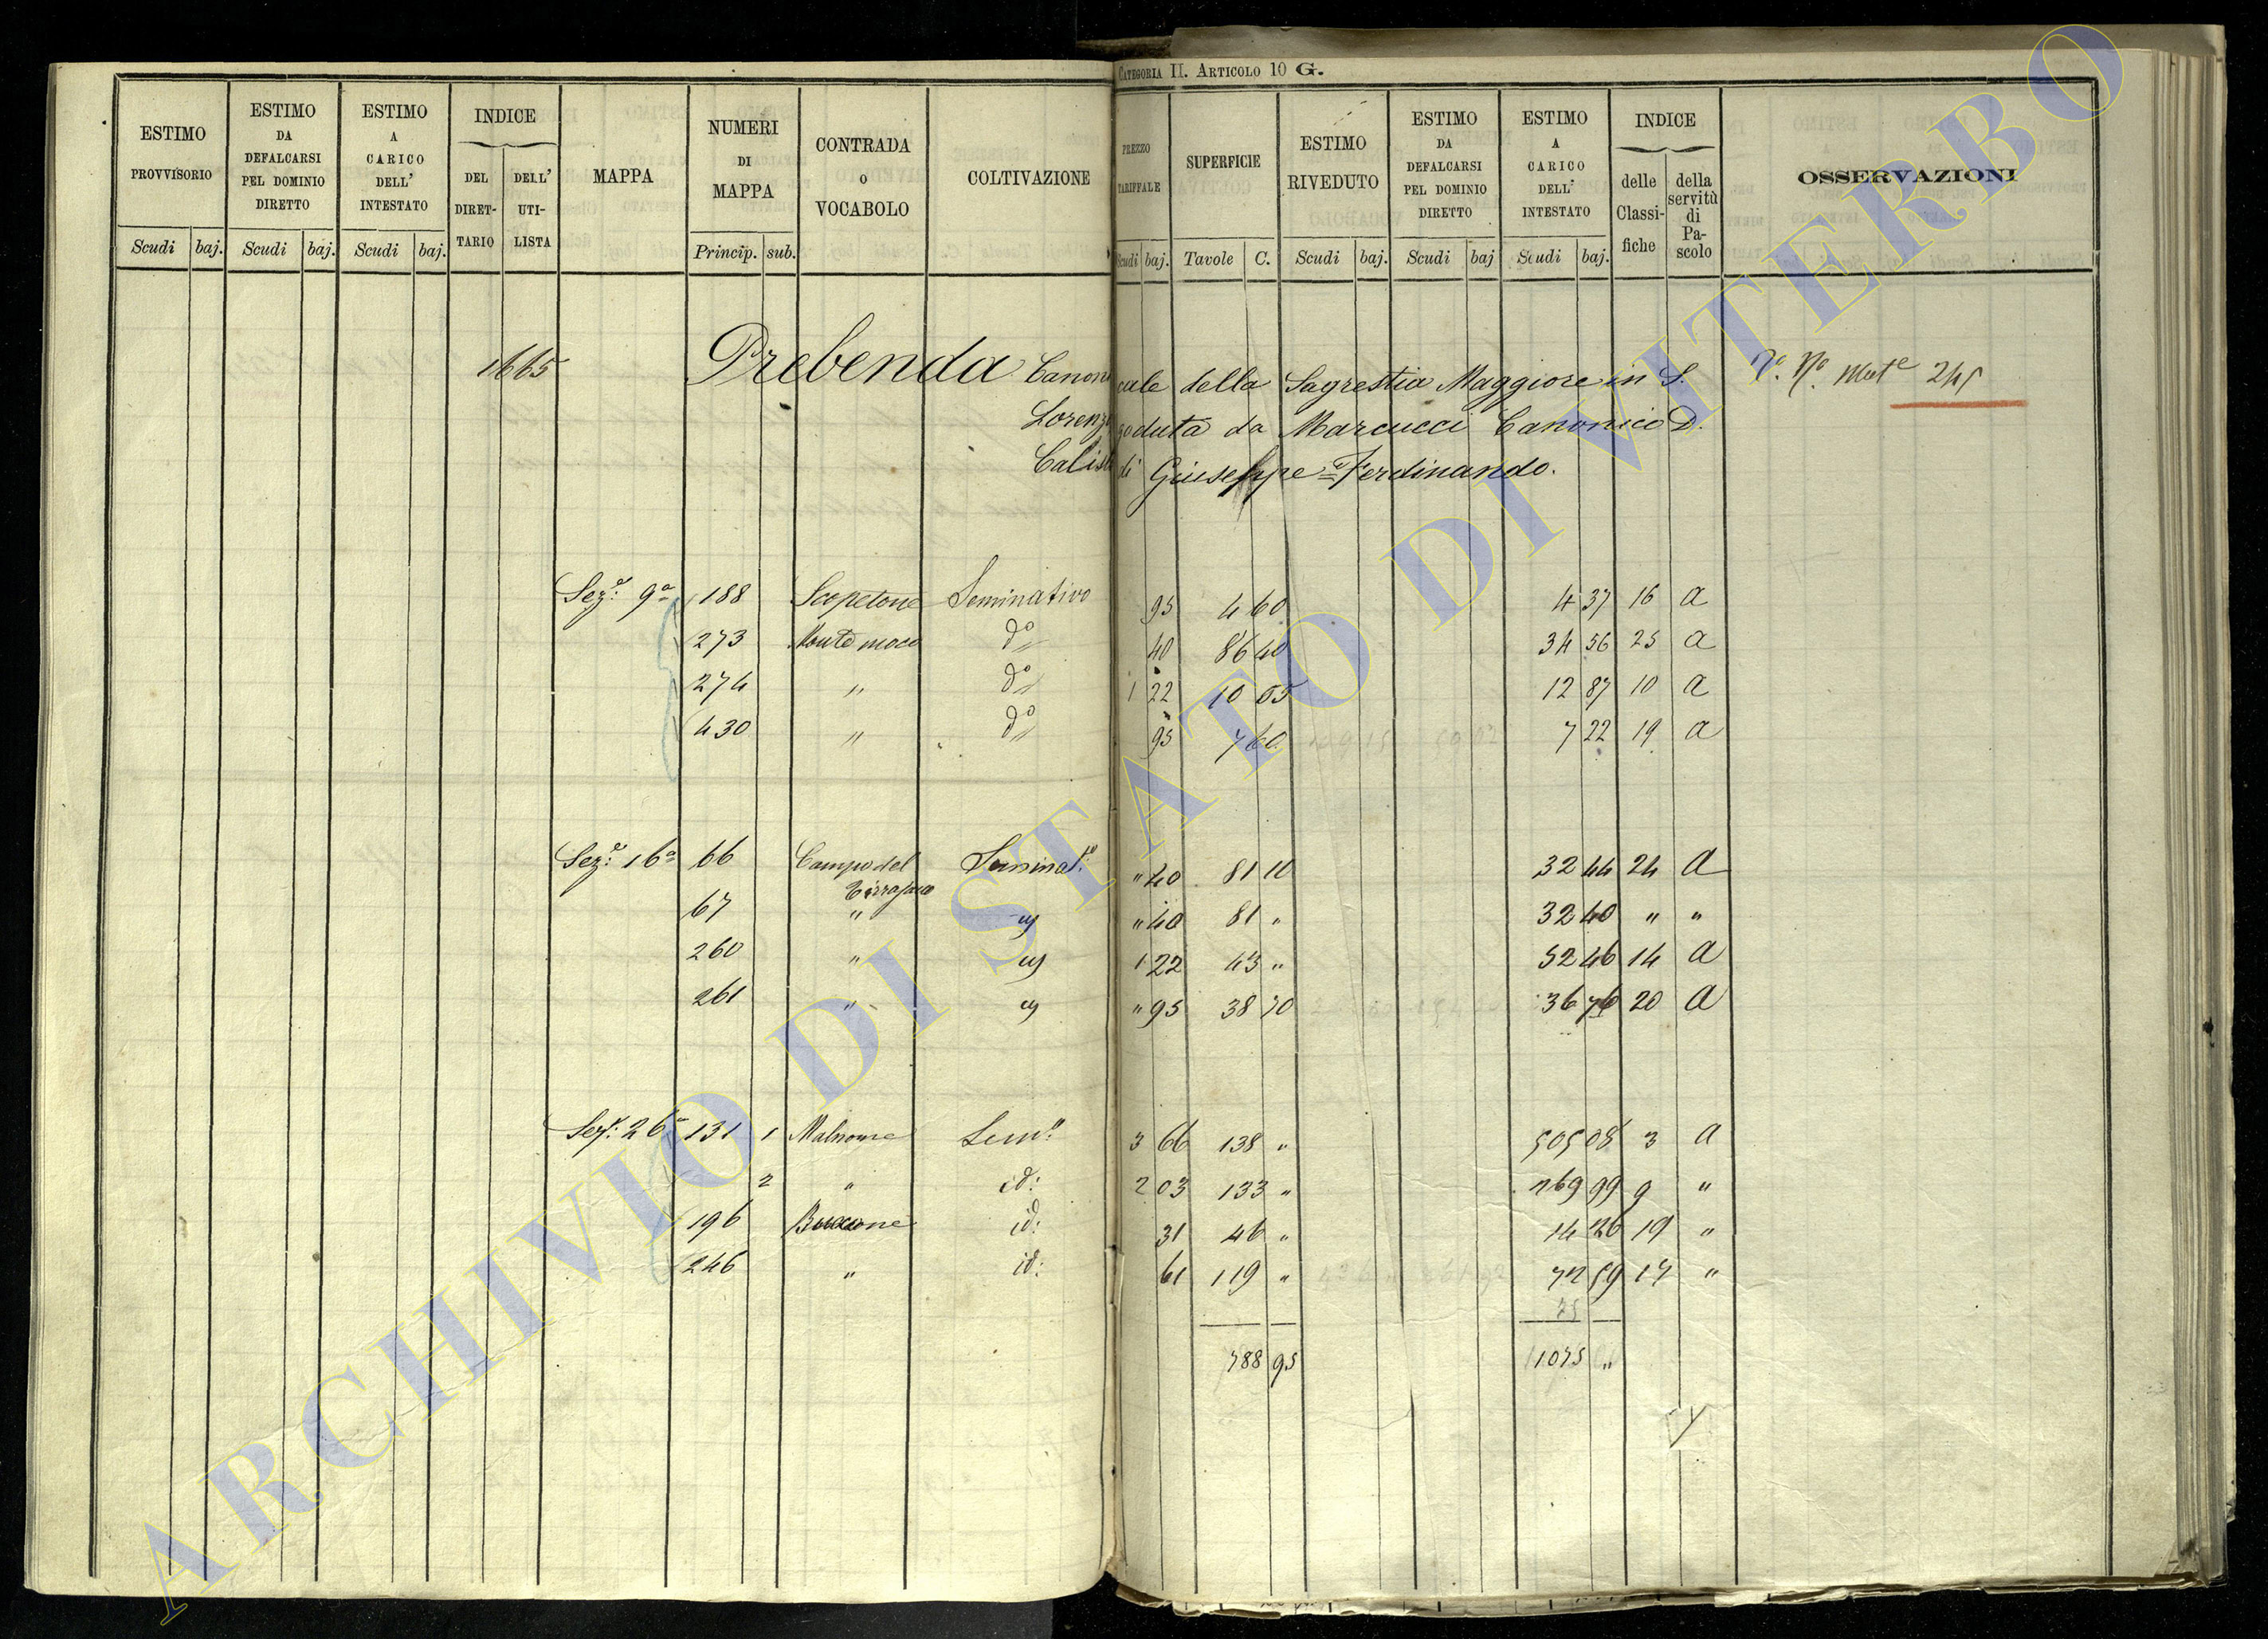 CATEGORIA II. ARTICOLO 10 G.
ESTIMO PROVVISORIO
ESTIMO DA DEFALCARSI PEL DOMINIO DIRETTO
ESTIMO A CARICO DELL' INTESTATO
INDICE
DEL DIRET-TARIO
DELL' UTI-LISTA
MAPPA
NUMERI DI MAPPA
CONTRADA O VOCABOLO
COLTIVAZIONE
PREZZO TARIFFALE
SUPERFICIE
ESTIMO RIVEDUTO
ESTIMO DA DEFALCARSI PEL DOMINIO DIRETTO
ESTIMO A CARICO DELL' INTESTATO
INDICE
delle Classi-fiche
della servitù di Pa-scolo
OSSERVAZIONI
Scudi baj. Scudi baj. Scudi baj. Princip. sub. Scudi baj. Tavole C. Scudi baj. Scudi baj Scudi baj.
1665 Prebenda Canonicale della Sagrestia Maggiore in S.
Lorenzo goduta da Marcucci Canonico D.
Calisto di Giuseppe=Ferdinando.
Sez.e 9a 188 Scopetone Seminativo 95 4 60 4 37 16 a
273 do 40 86 40 34 56 25 a
274 " do 1 22 10 55 12 87 10 a
430 " do 95 7 60 7 22 19 a
Sez.e 16a 66 Campo del Seminat.o " 40 81 10 32 44 24 a
67 " " 40 81 " 32 40 " "
260 " 1 22 43 " 52 46 14 a
261 " " 95 38 70 36 76 20 a
Sez. 26a 131 1 Malnome Sem.o 3 66 138 " 505 08 3 a
2 " id: 2 03 133 " 269 99 9 "
196 id: 31 46 " 14 26 19 "
246 " id: 61 119 " 72 59 17 "
75
788 95 1075 "
ARCHIVIO DI STATO DI VITERBO